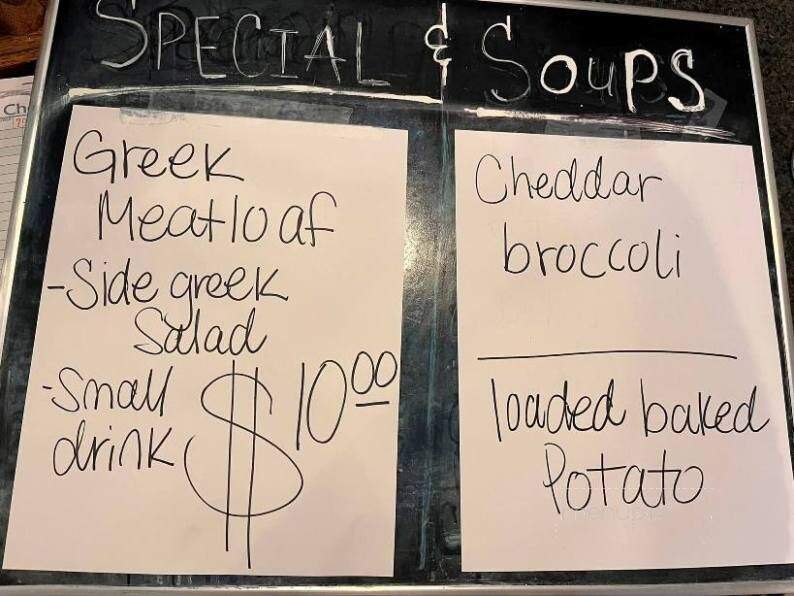 SPECIAL & SOUPS
Greek
Meatloaf
-Side greek
Salad
-Small
drink
$10.00
Cheddar
broccoli
loaded baked
Potato
Ch